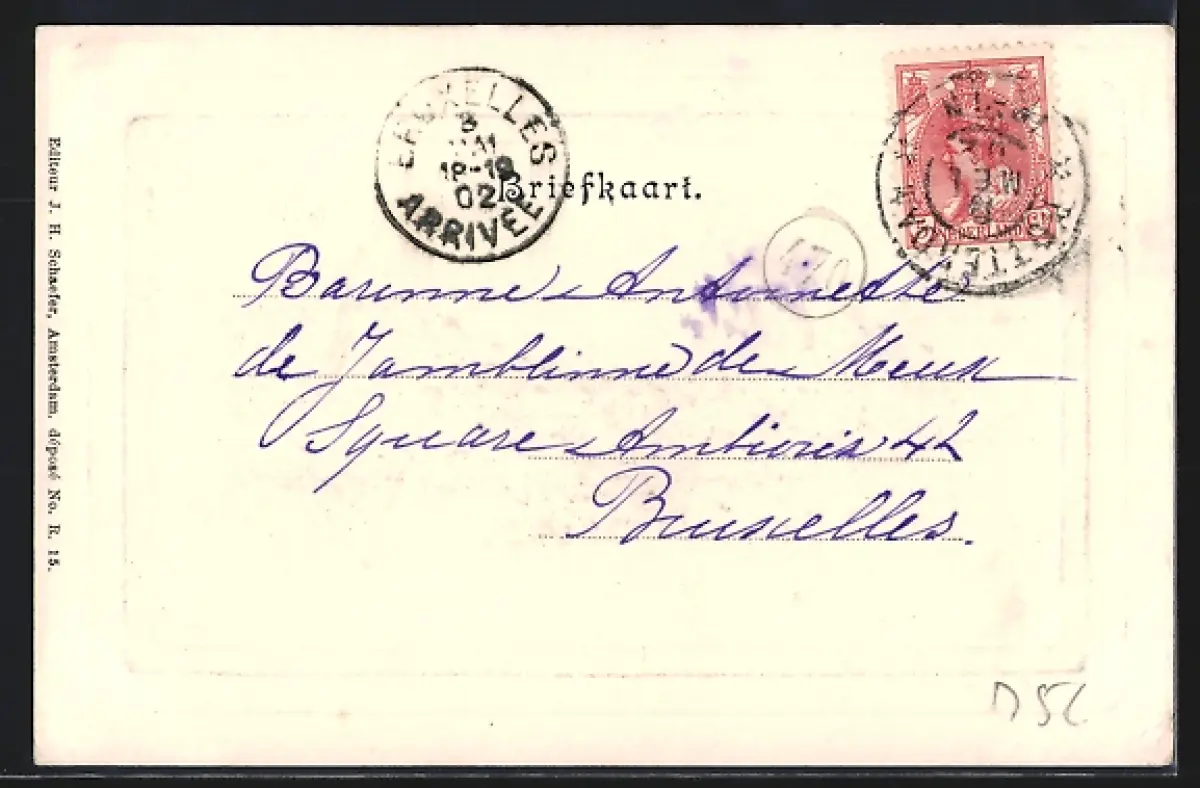 Editeur J. H. Schaefer, Amsterdam, déposé No. R. 15.
BRUXELLES
8
18-19
02
ARRIVÉE
Briefkaart.
NEDERLAND
ROTTERDAM
470
Baronne Antoinette
de Jamblinne de Meux
Square Ambiorix 42
Bruxelles.